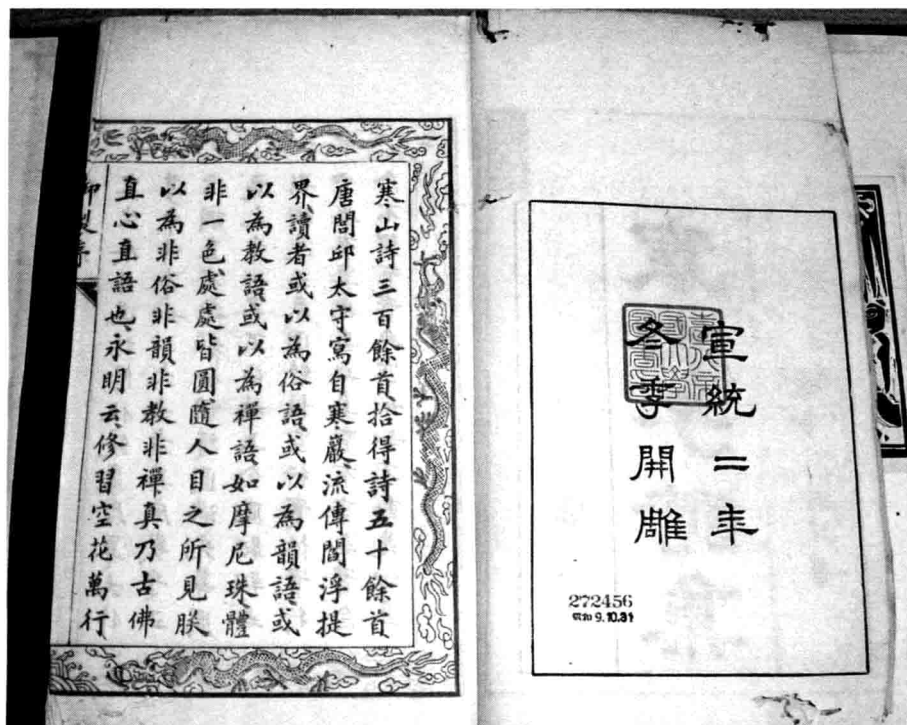 宣統二年
冬季開雕
272456
昭和 9.10.31
寒山詩三百餘首拾得詩五十餘首
唐閭邱太守寫自寒巖流傳閻浮提
界讀者或以為俗語或以為韻語或
以為教語或以為禪語如摩尼珠體
非一色處處皆圓隨人目之所見朕
以為非俗非韻非教非禪真乃古佛
直心直語也永明云修習空花萬行
御製序